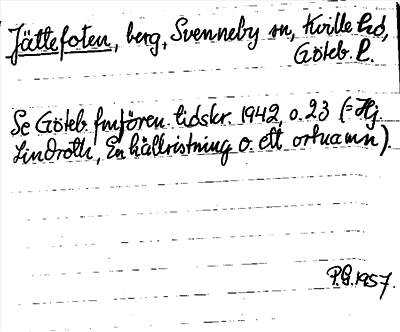 Jättefoten, berg, Svenneby sn, Kville hd,
Göteb. l.
Se Göteb. fmfören. tidskr. 1942, s. 23 (= Hj.
Lindroth, En hällristning o. ett ortnamn).
P.G. 1957.